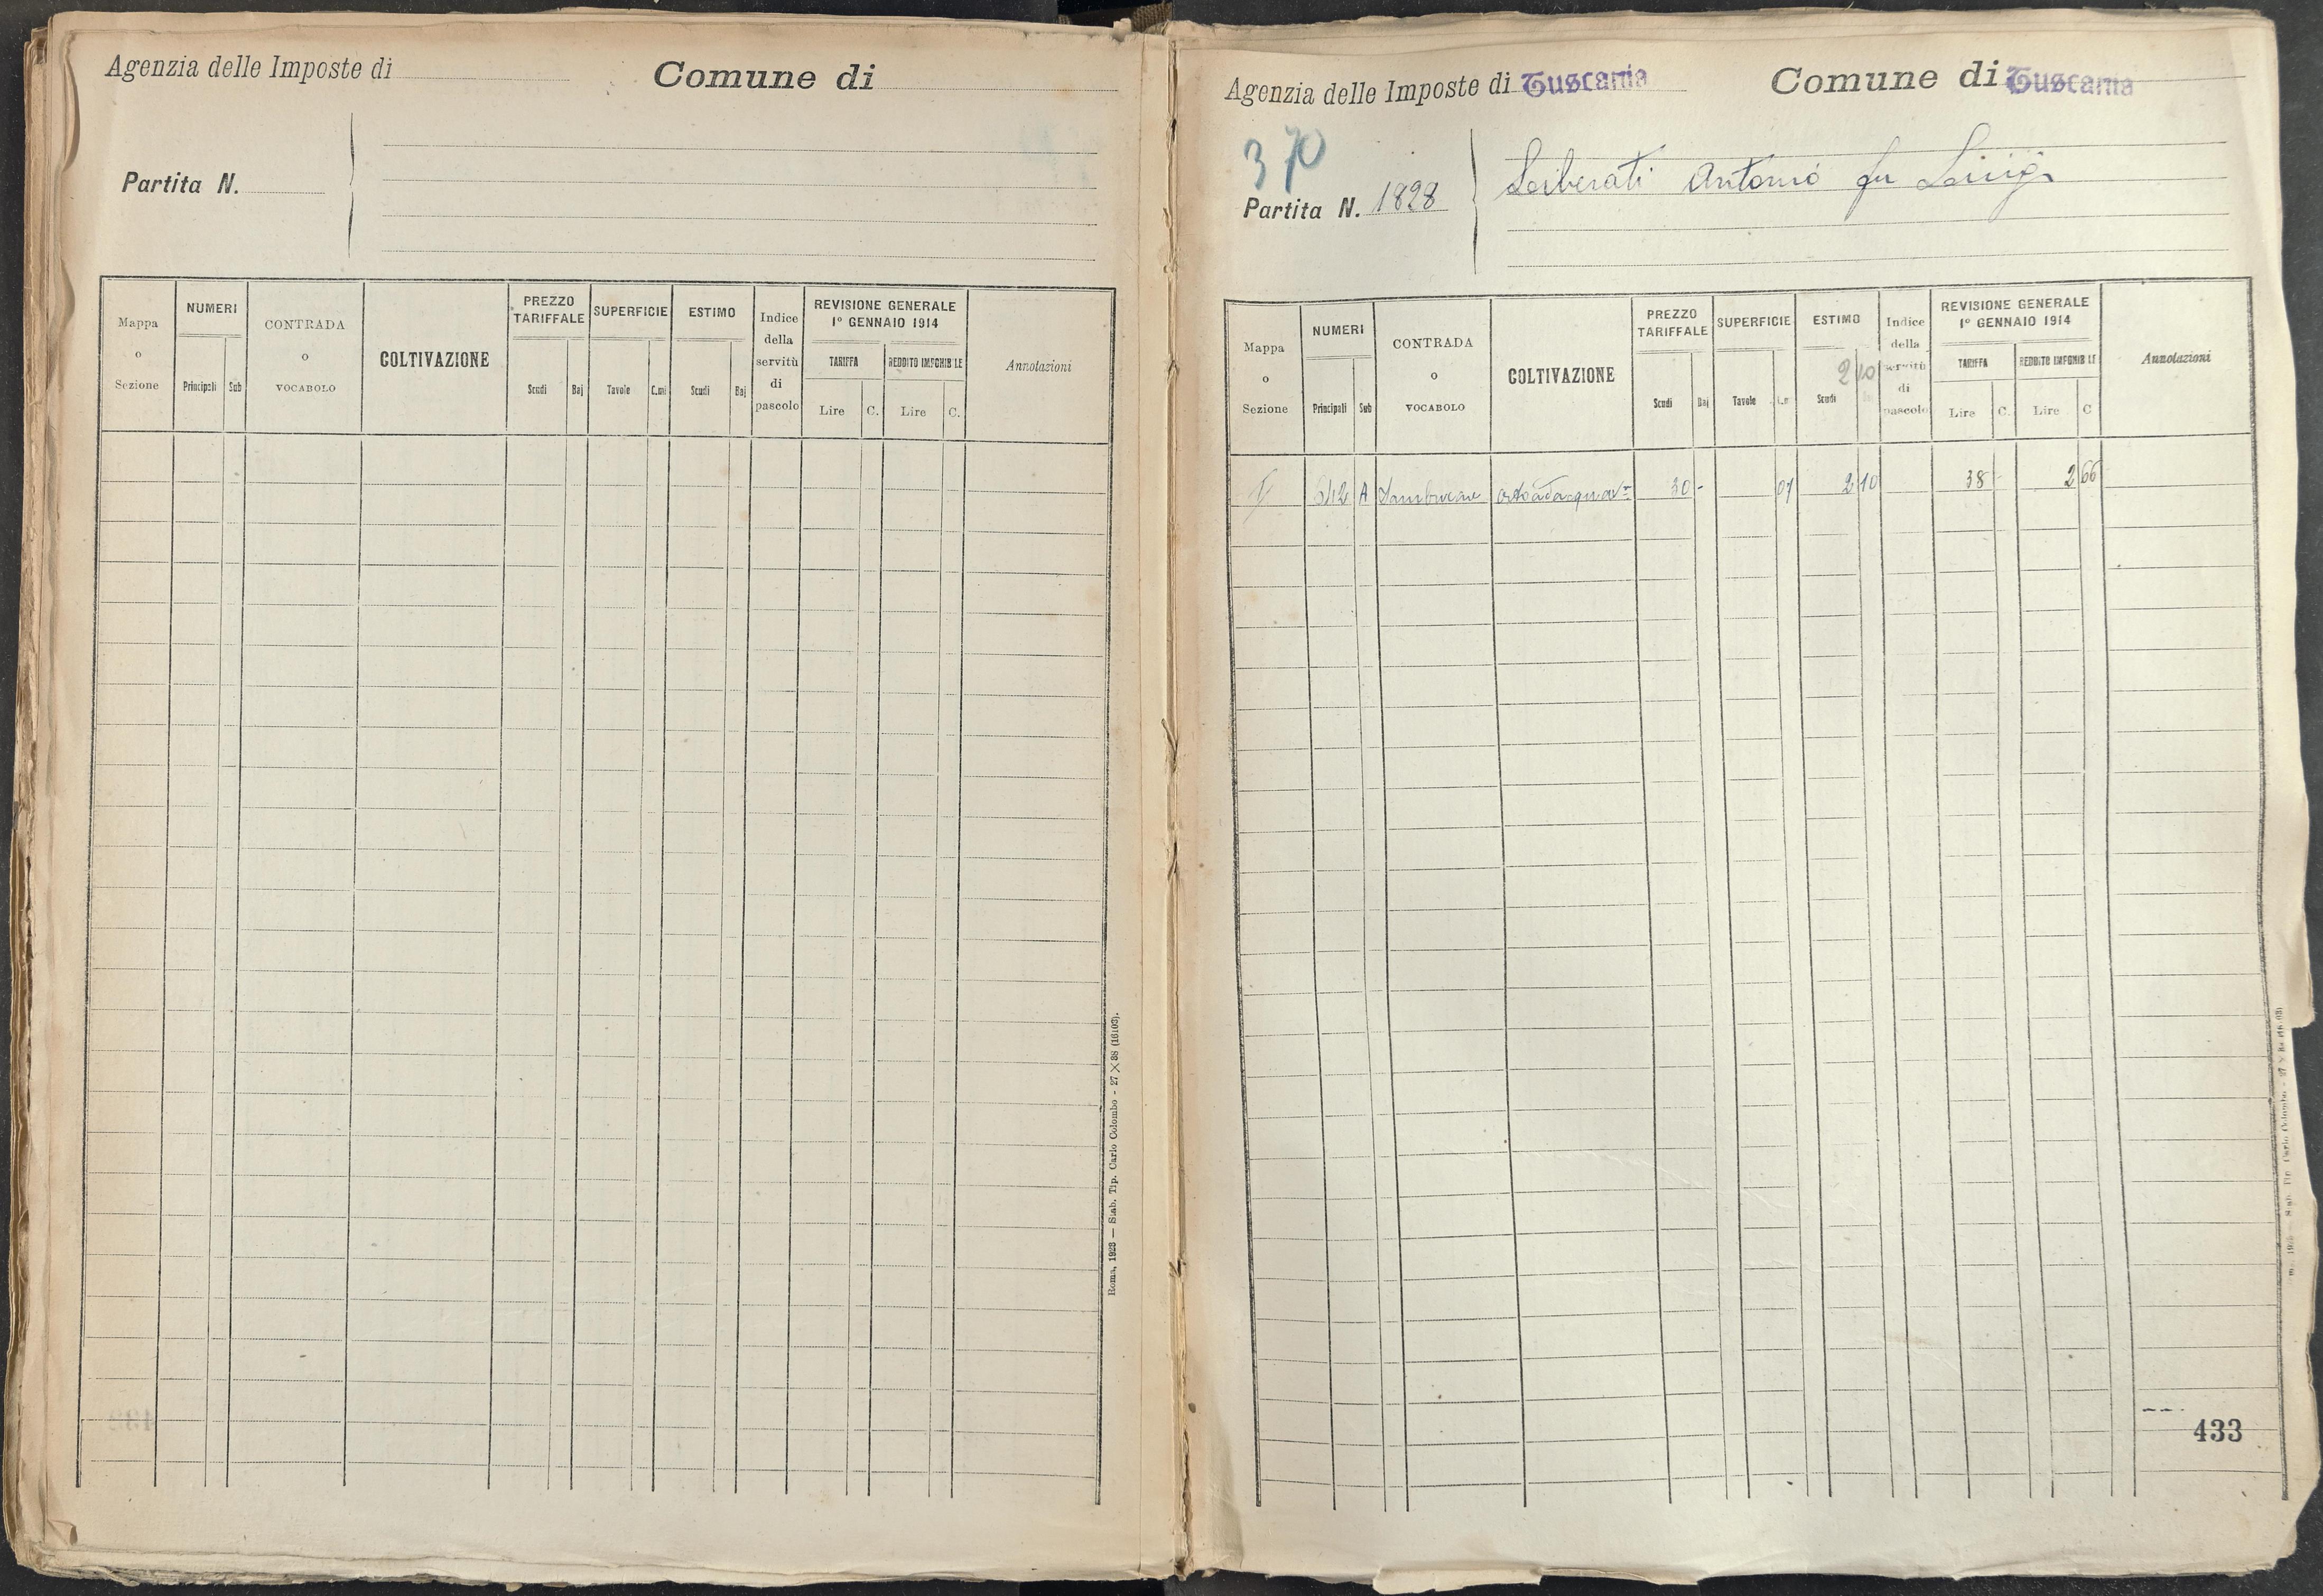 Agenzia delle Imposte di
Comune di
Partita N.
Mappa o Sezione
NUMERI
Principali
Sub
CONTRADA o VOCABOLO
COLTIVAZIONE
PREZZO TARIFFALE
Scudi
Baj
SUPERFICIE
Tavole
C.mi
ESTIMO
Scudi
Baj
Indice della servitù di pascolo
REVISIONE GENERALE
1° GENNAIO 1914
TARIFFA
Lire
C.
REDDITO IMPONIBILE
Lire
C.
Annotazioni
Roma, 1923 — Stab. Tip. Carlo Colombo - 27 × 38 (16103).
Agenzia delle Imposte di Tuscania
Comune di Tuscania
370
Partita N. 1828
Liberati Antonio fu Luigi
Mappa o Sezione
NUMERI
Principali
Sub
CONTRADA o VOCABOLO
COLTIVAZIONE
PREZZO TARIFFALE
Scudi
Baj
SUPERFICIE
Tavole
C.mi
ESTIMO
2 10
Scudi
Indice della servitù di pascolo
REVISIONE GENERALE
1° GENNAIO 1914
TARIFFA
Lire
C.
REDDITO IMPONIBILE
Lire
C
Annotazioni
642 A 30 - 07 2 10 38 - 2 66
433